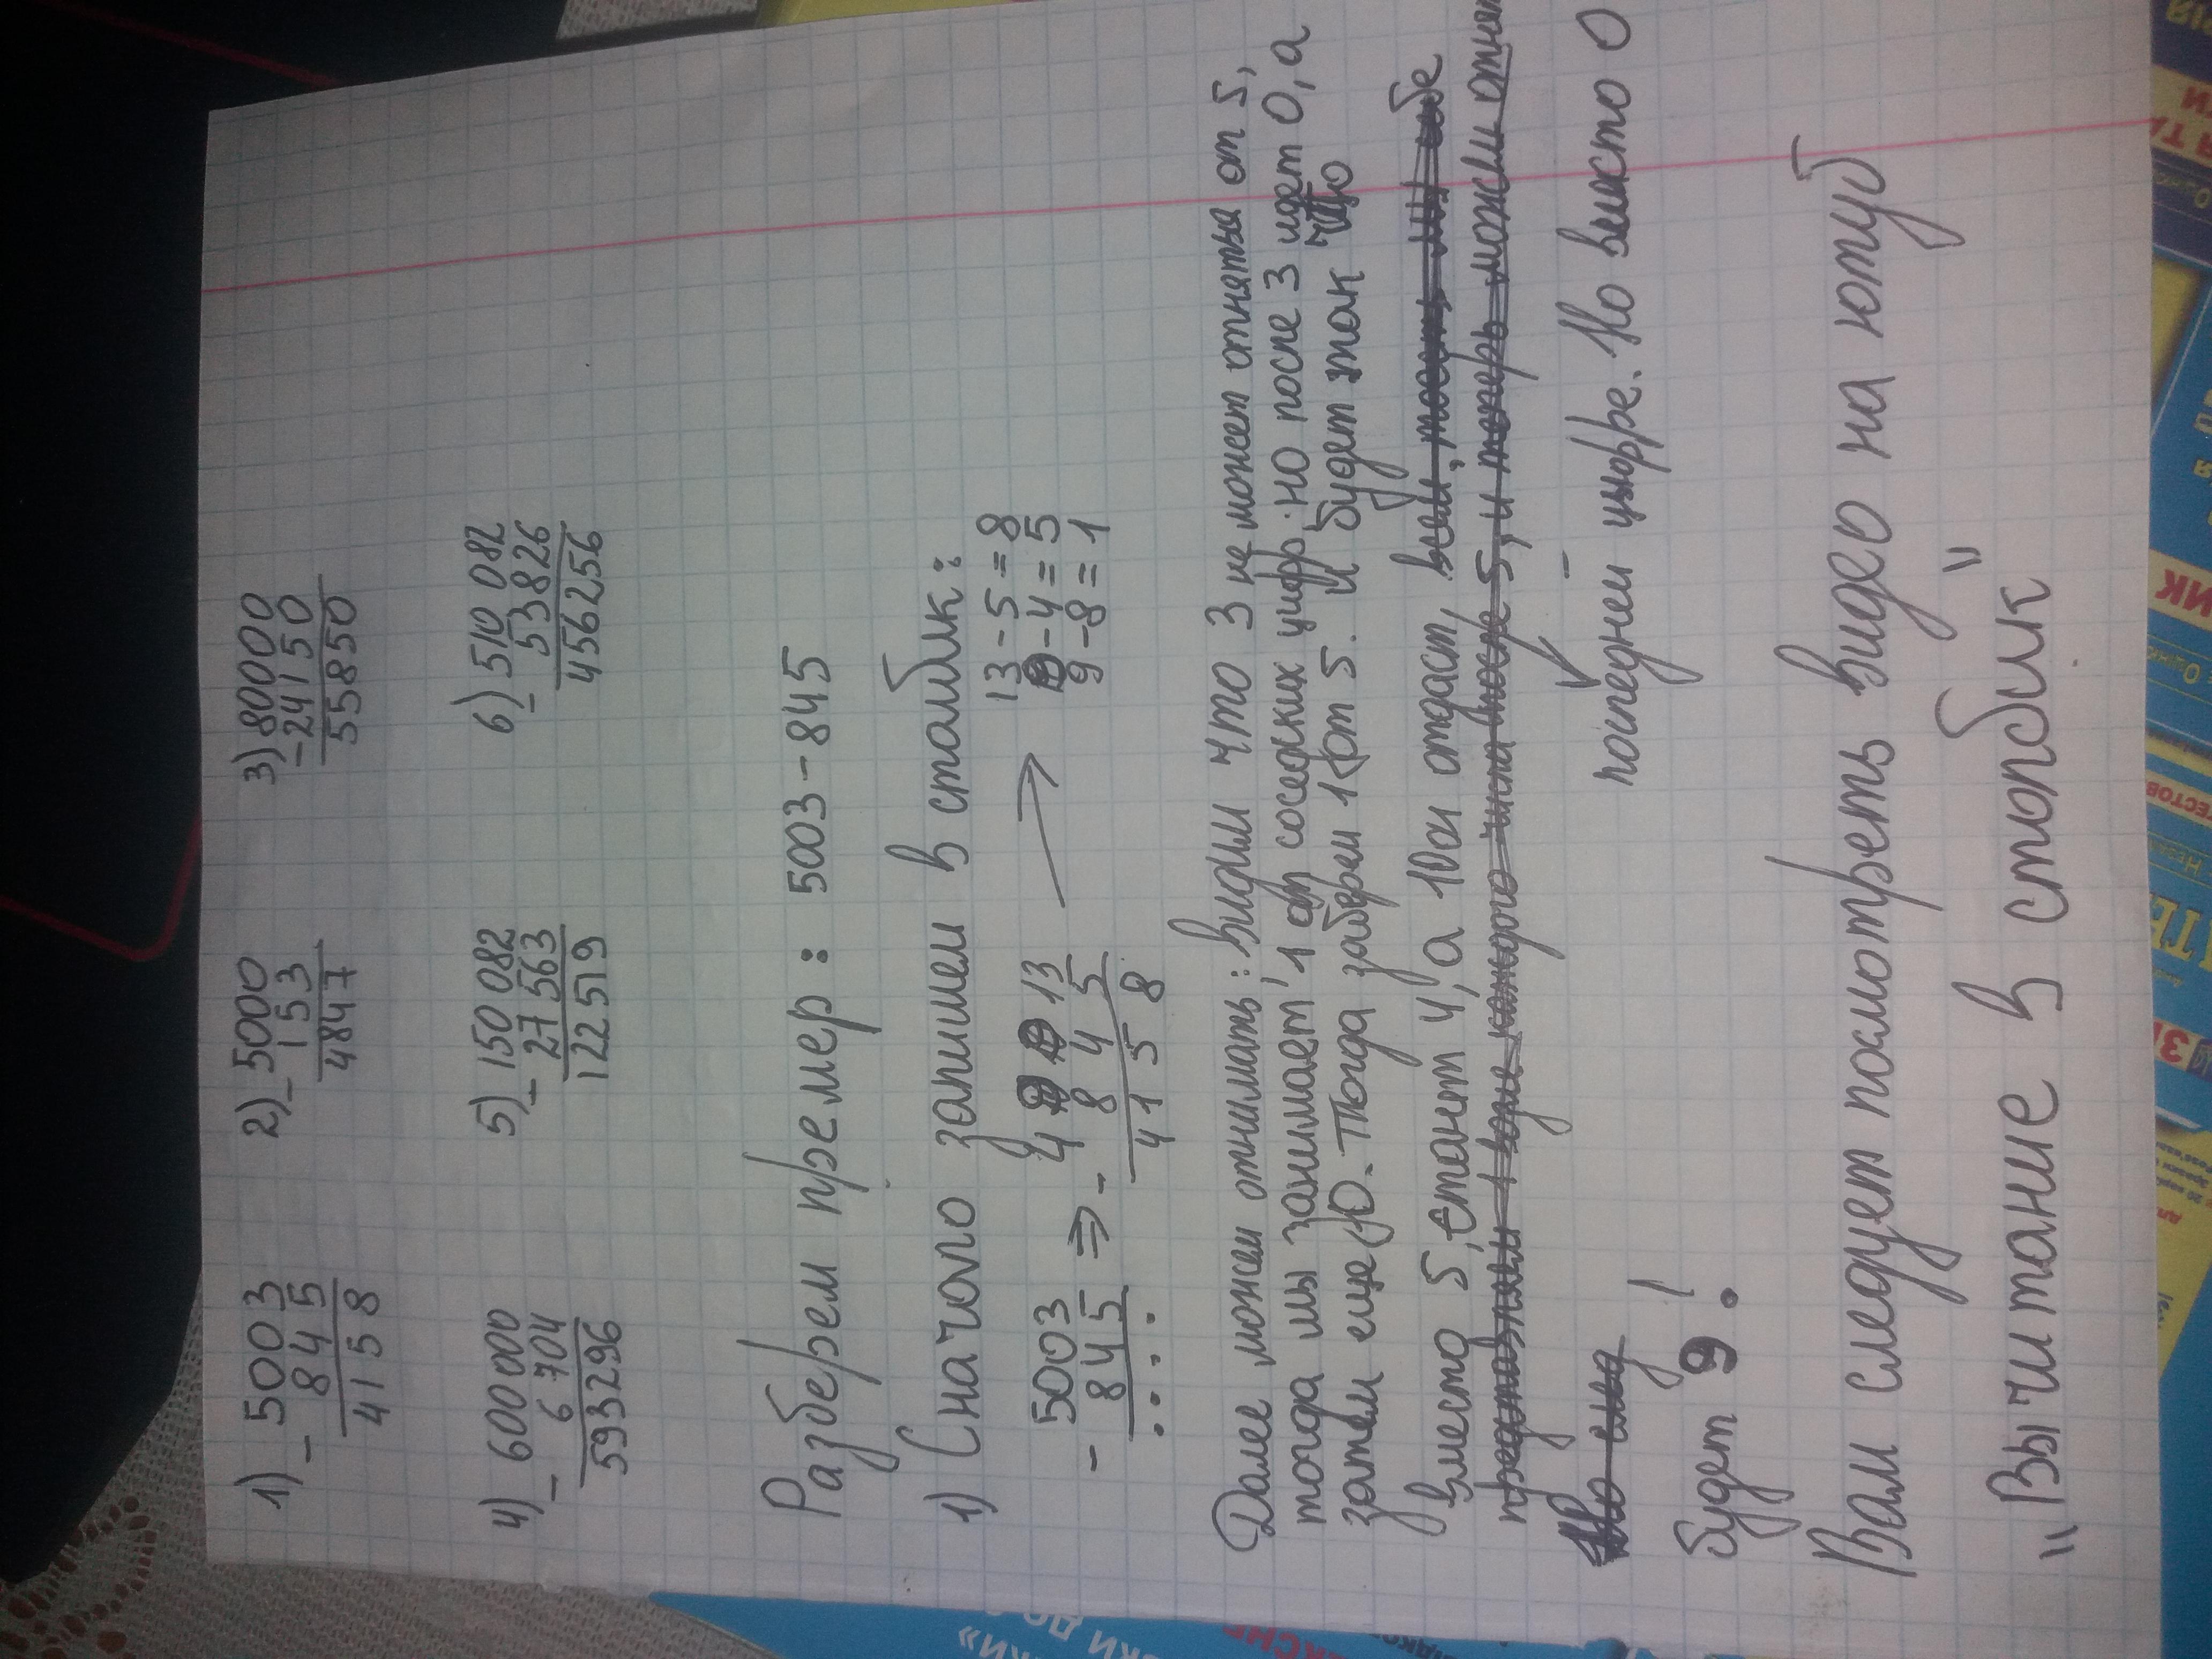 1) 5003 2) 5000 3) 80000
- 845 - 153 - 24150
4158 4847 55850
4) 600 000 5) 150 082 6) 510 082
- 6 704 - 27 563 - 53 826
593296 122519 456256
Разберем премер: 5003-845
1) Сначало запишем в сталбик:
- 5003 ⇒ - 4 9 9 13 → 13-5=8
845 8 4 5 9-4=5
.... 4 1 5 8 9-8=1
Далее можем отнимать: видим что 3 не может отнятьа от 5,
тогда мы занимает 1 от соседких цифр. но после 3 идет 0, а
затем еще 0. Тогда заберем 1 от 5. И будет так что
вместо 5, станет 4, а 10ои отдаст,
последней цифре. Но вместо 0
будет 9!
Вам следует посмотреть видео на ютуб
"Вычитание в столбик"